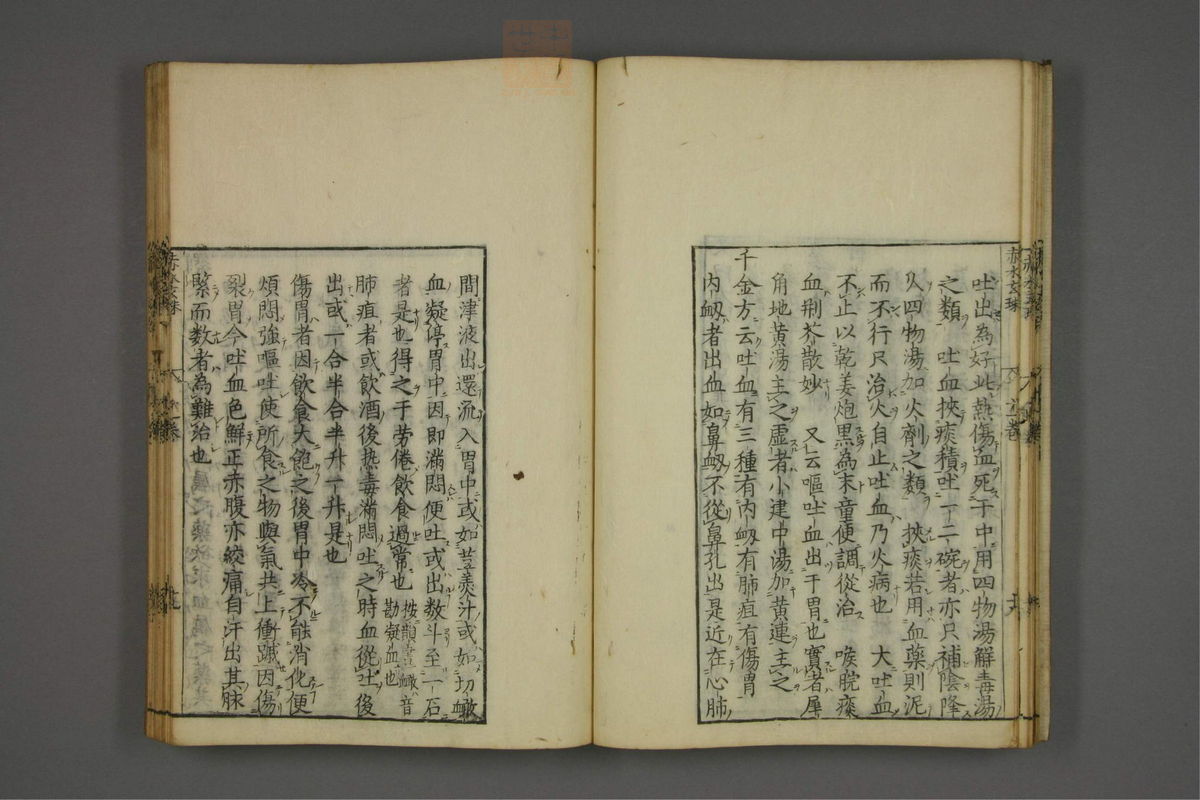 吐出為好此熱傷血死于中用四物湯解毒湯
之類　吐血挾痰積吐一二碗者亦只補陰降
火四物湯加火劑之類　挾痰若用血藥則泥
而不行只治火自止吐血乃火病也　大吐血
不止以乾姜炮黑為末童便調從治　喉脘痰
血荆芥散妙　又云嘔吐血出于胃也實者犀
角地黃湯主之虛者小建中湯加黃連主之
千金方云吐血有三種有内衂有肺疽有傷胃
内衂者出血如鼻衂不從鼻孔出是近在心肺
間津液出還流入胃中或如荳羹汁或如切𧖻
血凝停胃中因即滿悶便吐或出数斗至一石
者是也得之于劳倦飲食過常也 按韻書𧖻音勘凝血也
肺疽者或飲酒後热毒滿悶吐之時血從吐後
出或一合半合半升一升是也
傷胃者因飲食大飽之後胃中冷不能消化便
煩悶強嘔吐使所食之物與氣共上衝蹴因傷
裂胃今吐血色鮮正赤腹亦絞痛自汗出其脉
緊而数者為難治也
赤水玄珠